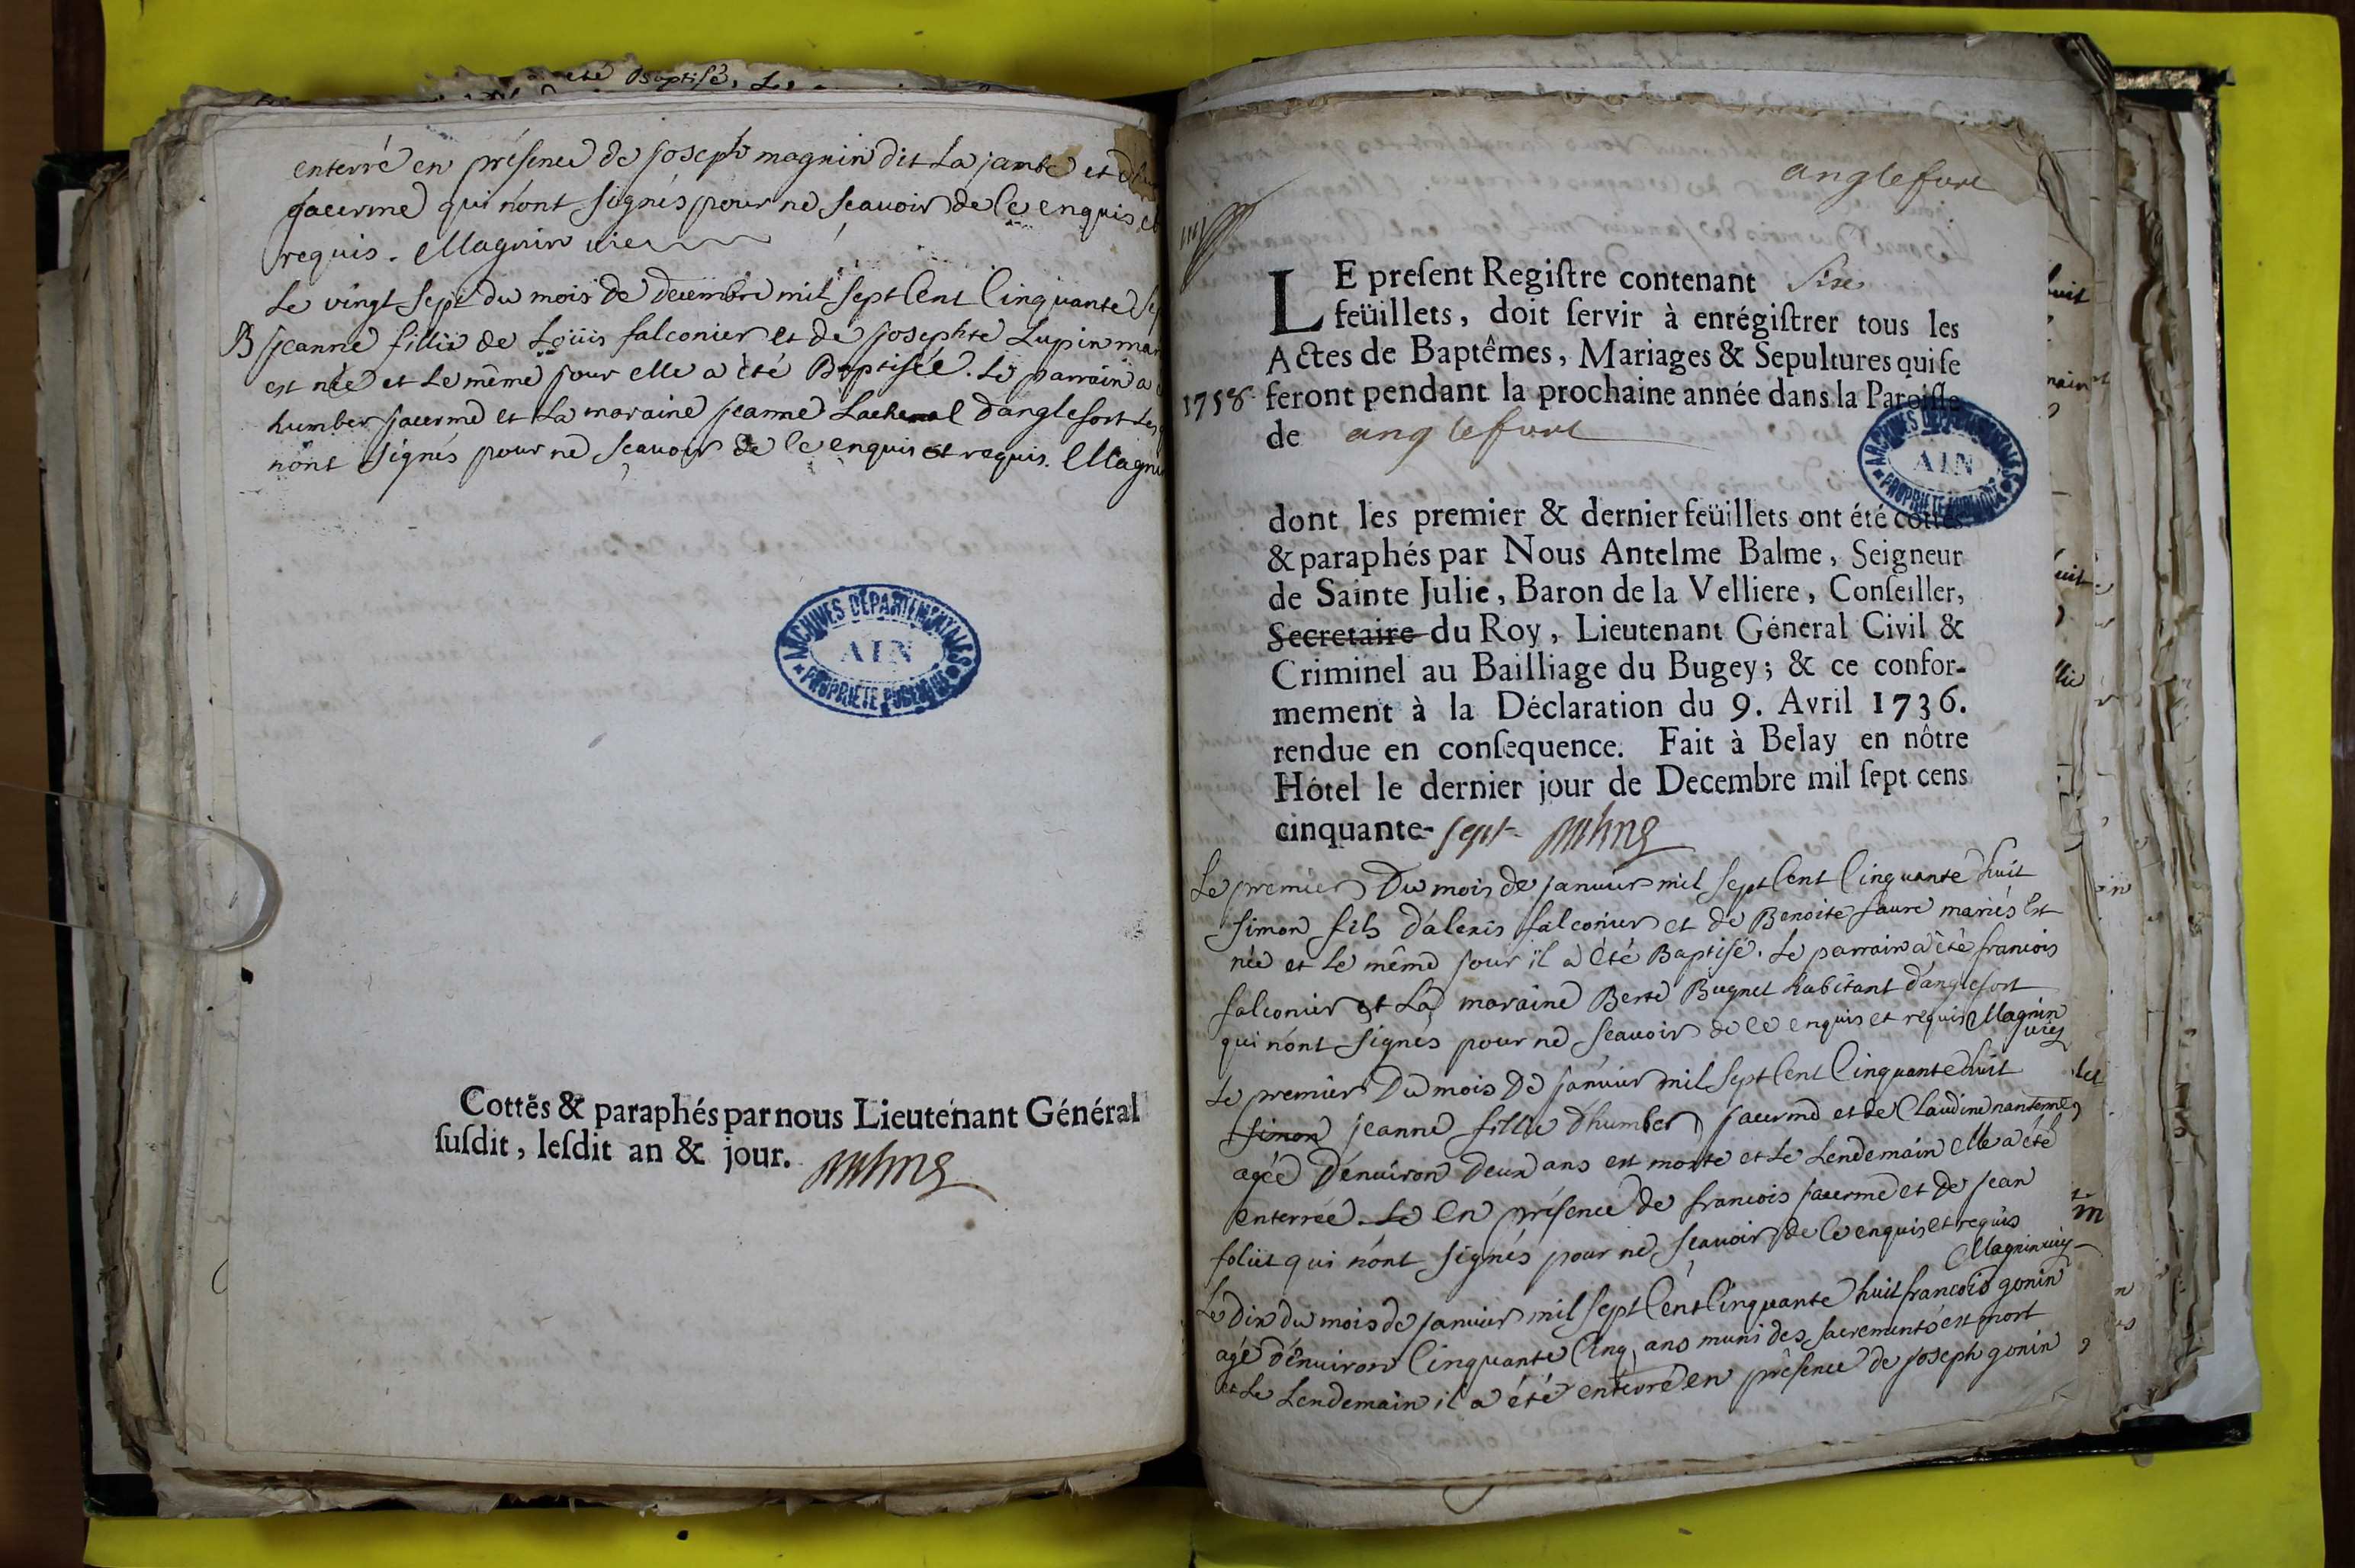 été Baptisé. Le
enterré en présence de joseph magnin dit La jambe et
jacerme qui n'ont signés pour ne scavoir de ce enquis et
requis. Magnin vic
Le vingt sept du mois de decembre mil sept Cent Cinquante sep
B jeanne fillie de Loüis falconier et de josephte Lupin mar
est née et Le même jour elle a été Baptisée. Le parrain a
humber jacerme et La maraine jeanne Lachenal d'anglefort Les
n'ont signés pour ne scavoir de ce enquis et requis. Magnin
ARCHIVES DÉPARTEMENTALES
AIN
PROPRIÉTÉ PUBLIQUE
Cottés & paraphés par nous Lieutenant Général
susdit, lesdit an & jour.
anglefort
LE preſent Regiſtre contenant Six
feüillets, doit ſervir à enrégiſtrer tous les
Actes de Baptêmes, Mariages & Sepultures qui ſe
1758. feront pendant la prochaine année dans la Paroiſſe
de anglefort
ARCHIVES DÉPARTEMENTALES
AIN
PROPRIÉTÉ PUBLIQUE
dont les premier & dernier feüillets ont été cottés
& paraphés par Nous Antelme Balme, Seigneur
de Sainte Julie, Baron de la Velliere, Conſeiller,
Secretaire du Roy, Lieutenant Géneral Civil &
Criminel au Bailliage du Bugey; & ce confor-
mement à la Déclaration du 9. Avril 1736.
rendue en conſequence. Fait à Belay en nôtre
Hôtel le dernier jour de Decembre mil ſept cens
cinquante- sept
Le premier Du mois de janvier mil sept Cent Cinquante huit
simon fils d'alexis falconier et de Benoite faure mariés Est
née et Le même jour il a été Baptisé. Le parrain a été francois
falconier et La maraine Berte Bugnet habitant d'anglefort
qui n'ont signés pour ne scavoir de ce enquis et requis Magnin
vic
Le premier Du mois De janvier mil sept Cent Cinquante huit
simon jeanne fillie d'humber jacerme et de Claudine nanterme
agée D'enuiron Deux ans est morte et Le Lendemain elle a été
enterrée. Le en présence de francois jacerme et de jean
foliet qui n'ont signés pour ne scavoir de ce enquis et requis
Magnin vic
Le Dix du mois de janvier mil sept Cent Cinquante huit francois gonin
agé d'enuiron Cinquante Cinq ans muni des sacrements est mort
et Le Lendemain il a été enterré en présence de joseph gonin